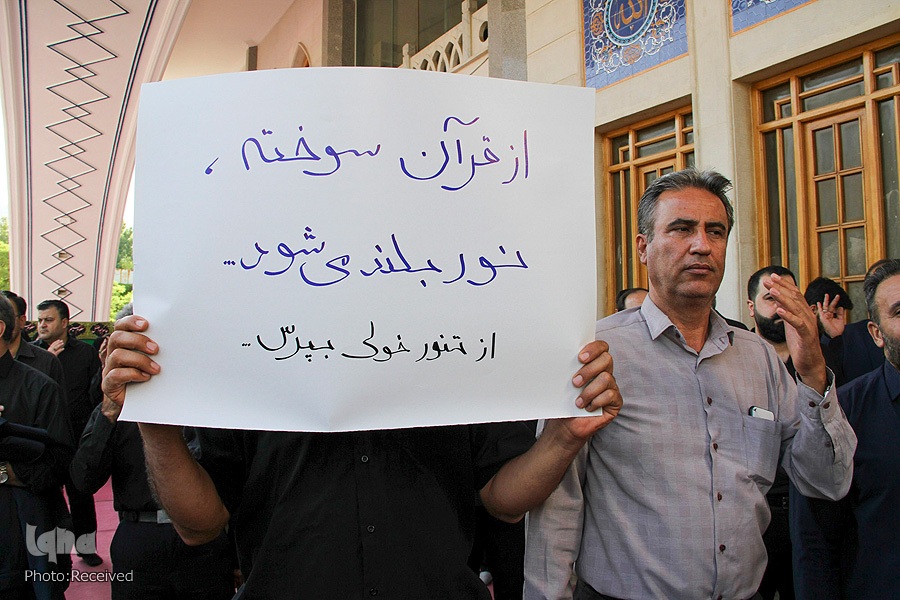 از قرآن سوخته ،
نور بلند می شود...
از تنور خولی بپرسّ...
الله
iqna
Photo:Received